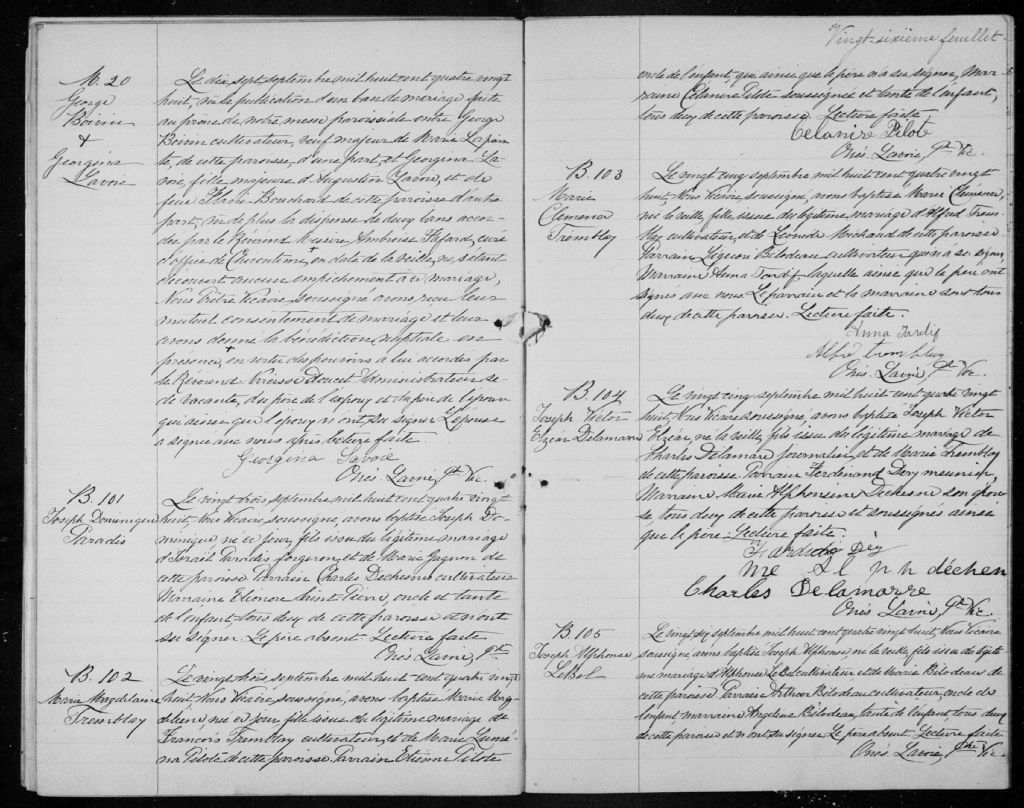 M. 20
George
Boivin
+
Georgina
Lavoie
Le dix sept septembre mil huit cent quatre vingt
huit, vu la publication d'un ban de mariage faite
au prône de notre messe paroissiale entre George
Boivin cultivateur, veuf majeur de Marie Lapoin-
te, de cette paroisse, d'une part, et Georgina La-
voie, fille majeure d'Augustin Lavoie, et de
feue Flavie Bouchard de cette paroisse d'autre
part, vu de plus la dispense de deux bans accor-
dée par le Révérend Messire Ambroise Fafard, curé
d'office de Chicoutimi, + en date de la veille, ne s'étant
découvert aucun empêchement à ce mariage,
Nous Prêtre Vicaire soussigné avons reçu leur
mutuel consentement de mariage et leur
avons donné la bénédiction nuptiale en
présence, + en vertu des pouvoirs à lui accordés par
le Révérend Narcisse Doucet Administrateur se-
de vacante, du père de l'époux et du père de l'épouse
qui ainsi que l'époux n'ont su signer. L'épouse
a signé avec nous après lecture faite.
Georgina Lavoie
Onés. Lavoie, Ptre Vic.
B. 101
Joseph Dominique
Paradis
Le vingt trois septembre mil huit cent quatre vingt
huit, Nous Vicaire, soussigné, avons baptisé Joseph Do-
minique né ce jour, fils issu du légitime mariage
d'Israël Paradis forgeron et de Marie Gagnon de
cette paroisse Parrain Charles Dechesne cultivateur
Marraine Eléonore Saint Pierre, oncle et tante
de l'enfant tous deux de cette paroisse et n'ont
su signer. Le père absent. Lecture faite
Onés. Lavoie, Ptre
B. 102
Marie Magdelaine
Tremblay
Le vingt trois septembre mil huit cent quatre vingt
huit, Nous Vicaire, soussigné, avons baptisé Marie Mag-
deleine née ce jour, fille issue du légitime mariage de
François Tremblay cultivateur, et de Marie
Pilote de cette paroisse. Parrain Etienne Pilote
Vingt-sixième feuillet
oncle de l'enfant, qui ainsi que le père n'a su signer, Mar-
raine Célanire Pilote soussignée et tante de l'enfant,
tous deux de cette paroisse. Lecture faite
Celanire Pilot
Onés. Lavoie, Ptre Vic.
B. 103
Marie
Clémence
Tremblay
Le vingt cinq septembre mil huit cent quatre vingt
huit, Nous Vicaire, soussigné, avons baptisé Marie Clémence,
née la veille, fille issue du légitime mariage d'Alfred Trem-
blay, cultivateur, et de Léonide Michaud de cette paroisse
Parrain Bilodeau cultivateur qui n'a su signer,
Marraine Anna Tardif laquelle ainsi que le père ont
signés avec nous. Le parrain et la marraine sont tous
deux de cette paroisse. Lecture faite.
Anna Tardif
Tremblay
Onés. Lavoie, Ptre Vic.
B. 104
Joseph Victor
Elzéar Delamarre
Le vingt cinq septembre mil huit cent quatre vingt
huit, Nous Vicaire soussigné, avons baptisé Joseph Victor
Elzéar, né la veille, fils issu du légitime mariage de
Charles Delamare journalier, et de Marie Tremblay
de cette paroisse. Parrain Ferdinand Dery meunier,
Marraine Marie Alphonsine Dechesne son épou-
se, tous deux de cette paroisse et soussignés ainsi
que le père. Lecture faite.
Déry
Me déchen
Charles Delamarre
Onés. Lavoie, Ptre Vic.
B. 105
Joseph Alphonse
LeBel
Le vingt six septembre mil huit cent quatre vingt huit, Nous Vicaire
soussigné, avons baptisé Joseph Alphonse, né la veille fils issu du légiti-
me mariage d'Alphonse LeBel cultivateur et de Marie Bilodeau de
cette paroisse Parrain Arthur Bilodeau cultivateur, oncle de
l'enfant marraine Angelina Bilodeau, tante de l'enfant, tous deux
de cette paroisse et n'ont su signer. Le père absent. Lecture faite
Onés. Lavoie, Ptre Vic.